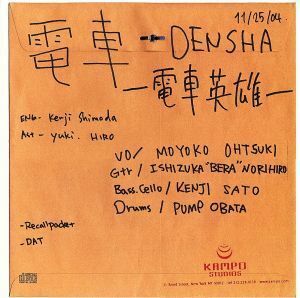 11/25/04.
電車 - DENSHA
-電車英雄-
ENG- Kenji Shimoda
Ast - yuki. HIRO
VO/ MOYOKO OHTSUKI
Gtr/ ISHIZUKA "BERA" NORIHIRO
Bass.Cello/ KENJI SATO
Drums/ PUMP OBATA
-Recall packet
-DAT
KAMPO
STUDIOS